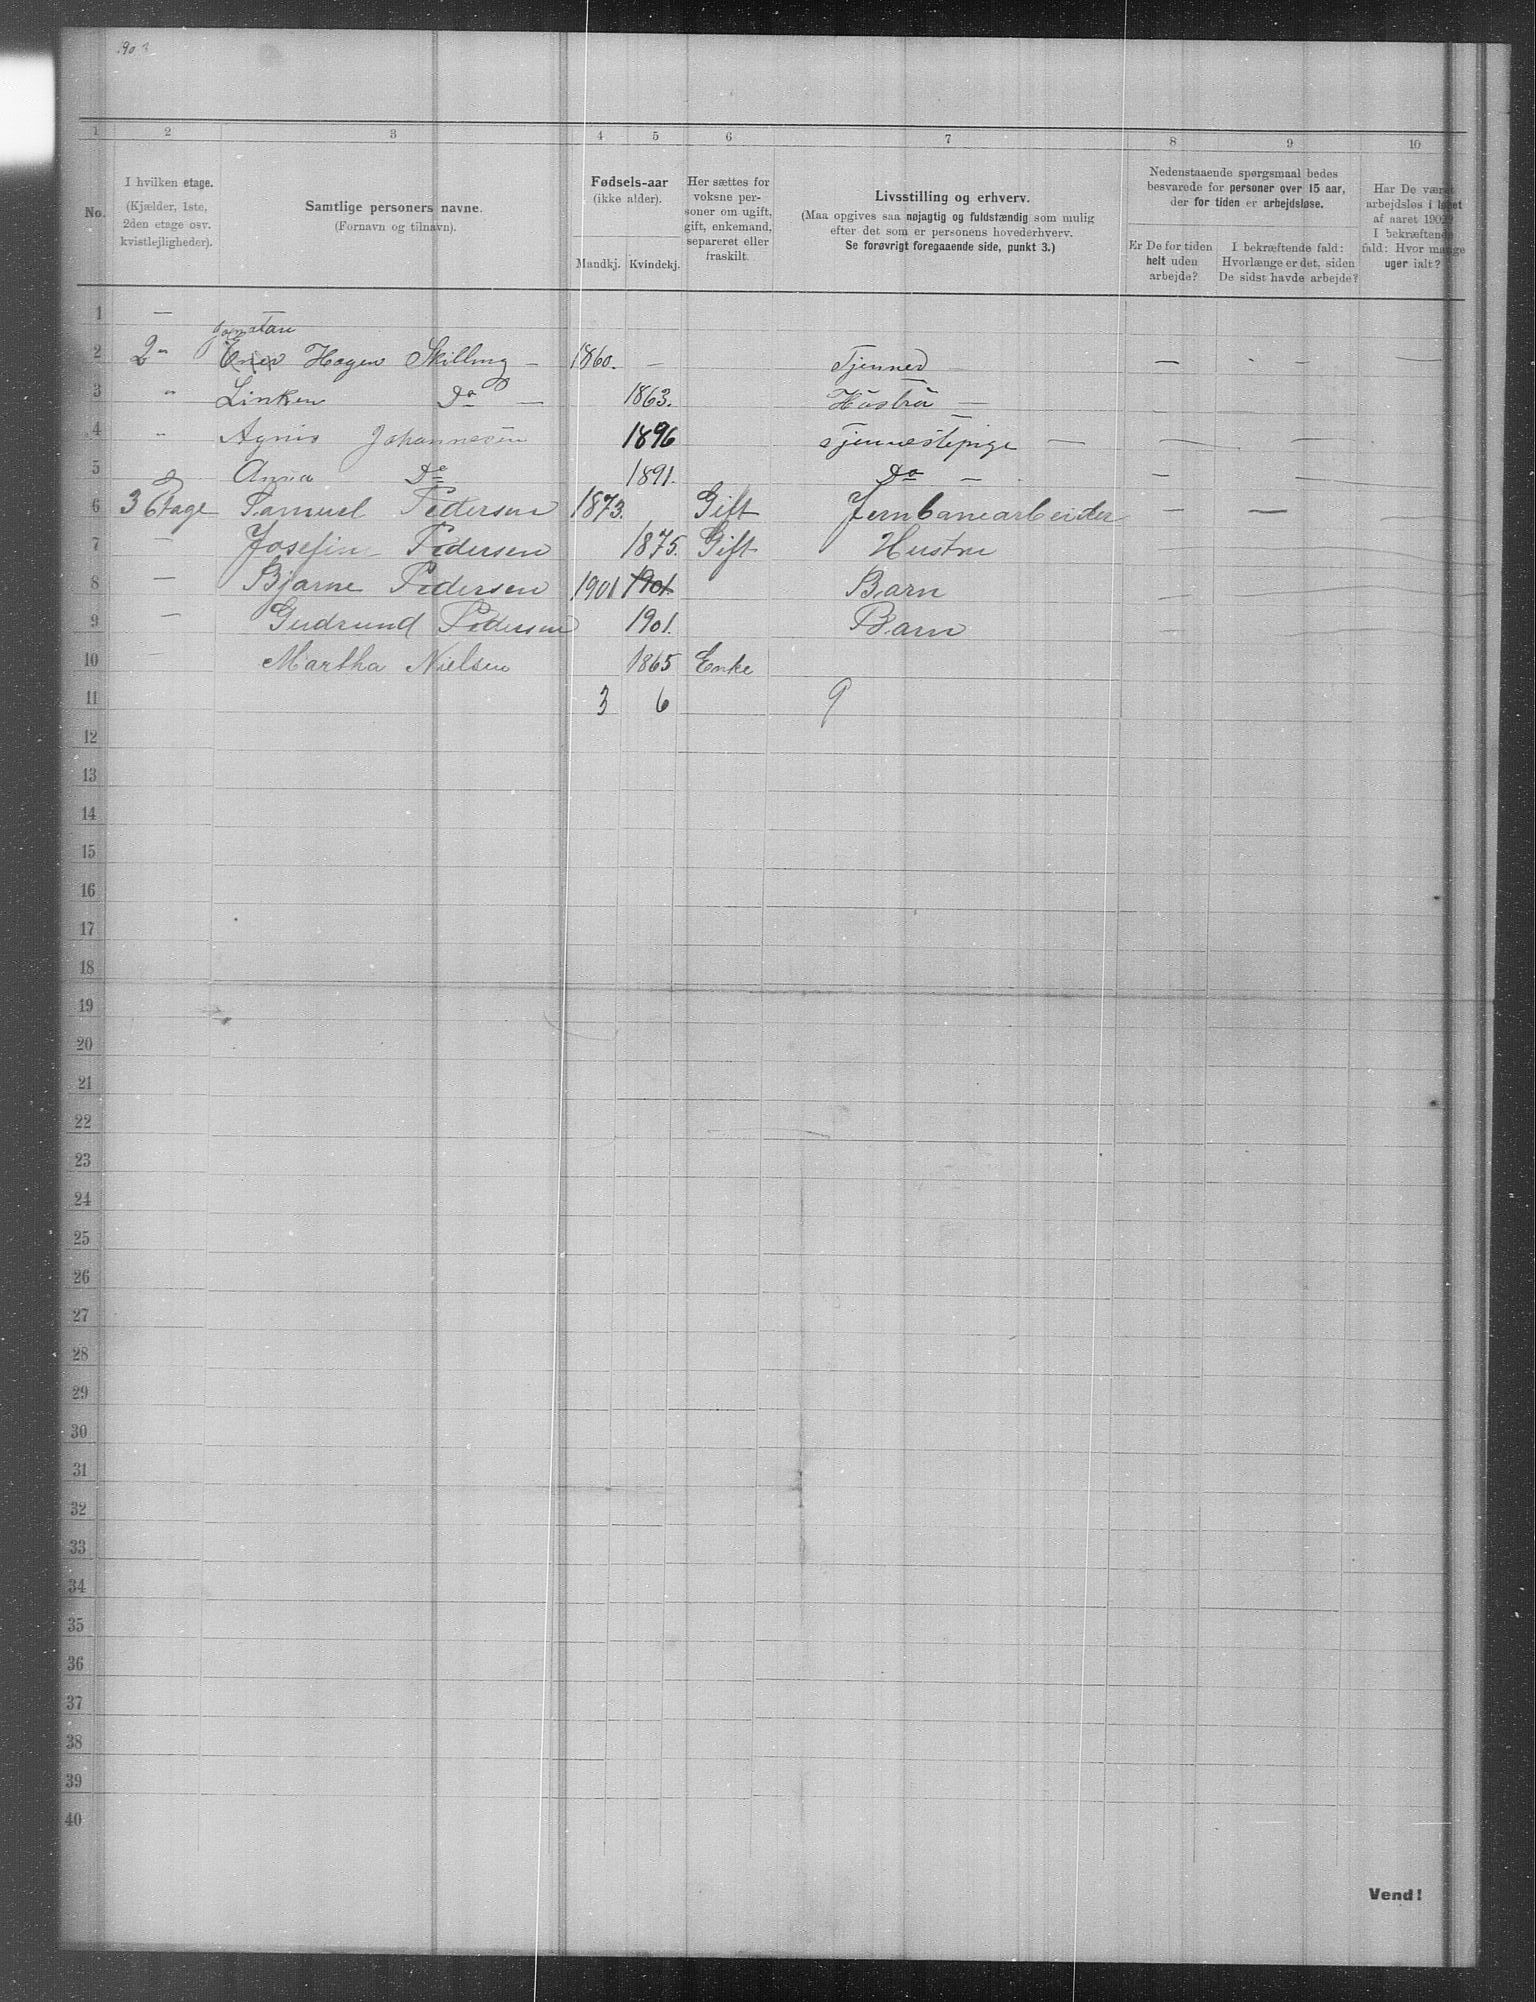 1 2 3 4 5 6 7 8 9 10
No.
I hvilken etage.
(Kjælder, 1ste,
2den etage osv.
kvistlejligheder).
Samtlige personers navne.
(Fornavn og tilnavn).
Fødsels-aar
(ikke alder).
Mandkj. Kvindekj.
Her sættes for
voksne per-
soner om ugift,
gift, enkemand,
separeret eller
fraskilt.
Livsstilling og erhverv.
(Maa opgives saa nøjagtig og fuldstændig som mulig
efter det som er personens hovederhverv.
Se forøvrigt foregaaende side, punkt 3.)
Nedenstaaende spørgsmaal bedes
besvarede for personer over 15 aar,
der for tiden er arbejdsløse.
Er De for tiden
helt uden
arbejde?
I bekræftende fald:
Hvorlænge er det, siden
De sidst havde arbejde?
Har De været
arbejdsløs i løbet
af aaret 1902?
I bekræftende
fald: Hvor mange
uger ialt?
1 — —
2 2 " Hagen Skilling — 1860. — Tjener — — . —
3 " Linken Do — 1863. Hustru —
4 " Agnis Johannesen 1896 Tjennestepige — — —
5 Anna Do 1891. Do — . —
6 3 Etage Samuel Pedersen 1873. Gift Jernbanearbeider — —
7 — Josefin Pedersen 1875. Gift Hustru
8 — Bjarne Pedersen 1901 1901. Barn
9 — Gudrund Pedersen 1901. Barn
10 Martha Nielsen 1865 Enke
11 3 6 9
12
13
14
15
16
17
18
19
20
21
22
23
24
25
26
27
28
29
30
31
32
33
34
35
36
37
38
39
40
Vend!